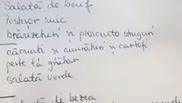 Salată de beuf
Ieșkor suc
brânzeturi și prosciuto struguri
cârnați cu murături și cartofi
pește la grătar
salată verde
de bezea